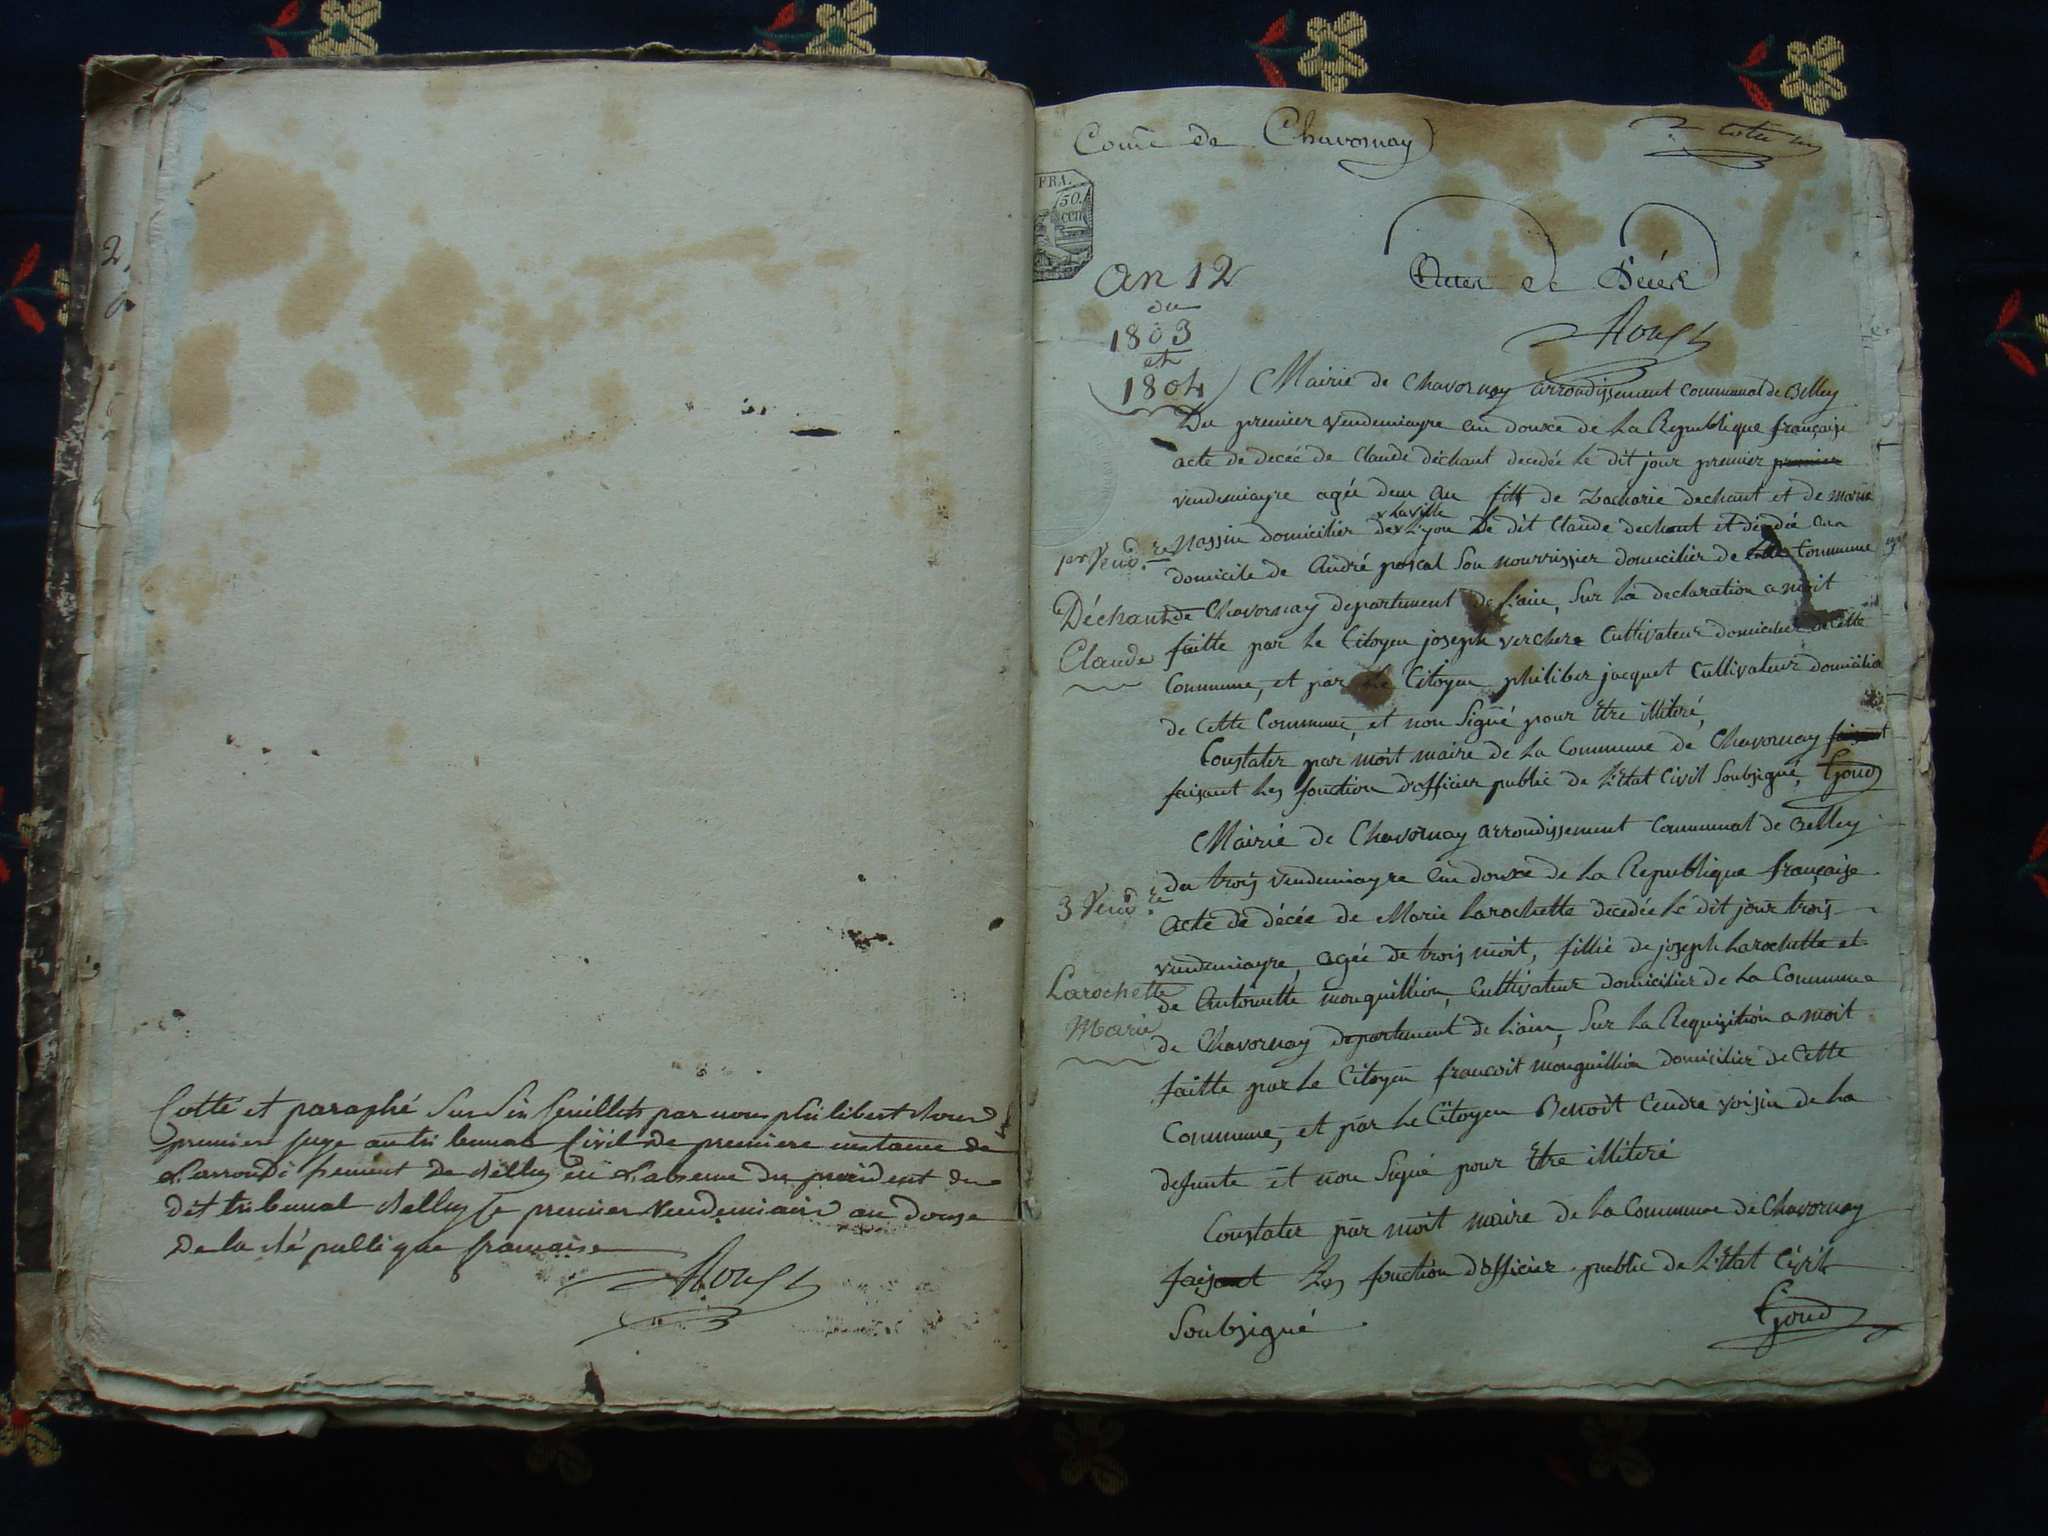 Cotté et paraphé Sur Six feuillets par nous philibert
premier juge au tribunal Civil de premiere instance de
L'arrondissement de Belley en L'absence du president du
dit tribunal Belley le premier Vendemiaire an douze
De la République francaise
Comᵉ de Chavornay
FRA.
50.
cen
an 12
du
1803
et
1804
Actes de Décès
Mairie de Chavornay arrondissement Communal de Belley
Du premier vendemiayre an douxe de La Republique française
acte de deceé de Claude déchant decedée le dit jour premier premier
vendemiayre agée deun an fill de Zacharie dechant et de marie
Nassin domicilier de La ville Lyon Le dit Claude dechant et décedée au
domicile de André pascal Son nourrissier domicilier de Commune
de Chavornay departement de Lain, Sur La declaration a moit
faitte par Le Citoyen joseph verchere Cultivateur domicilier de Cette
Commune, et par Le Citoyen philiber jacquet Cultivateur domicilier
de Cette Commune, et non Signé pour Etre illiteré,
Constater par moit maire de La Commune de Chavornay faisant
faisant Les fonction d'officier public de L'Etat Civil Soubsigné, Goud
pʳ Vendʳᵉ
Déchant
Claude
Mairie de Chavornay arrondissement Communal de Belley
du trois vendemiayre an douxe de La Republique française
acte de décée de Marie Larochette decedée Le dit jour trois
vendemiayre, agée de trois moit, fillie de joseph Larochette et
de Antoinette monguillion, Cultivateur domicilier de La Commune
de Chavornay departement de Lain, Sur La Requizition a moit
faitte par Le Citoyen francoit monguillion domicilier de Cette
Commune, et par Le Citoyen Benoit Cendre voisin de La
defunte et non Signé pour Etre illiteré
Constater par moit maire de La Commune de Chavornay
faisant Les fonction d'officier public de L'Etat Civil
Soubsigné
Goud
3 Vendʳᵉ
Larochette
Marie